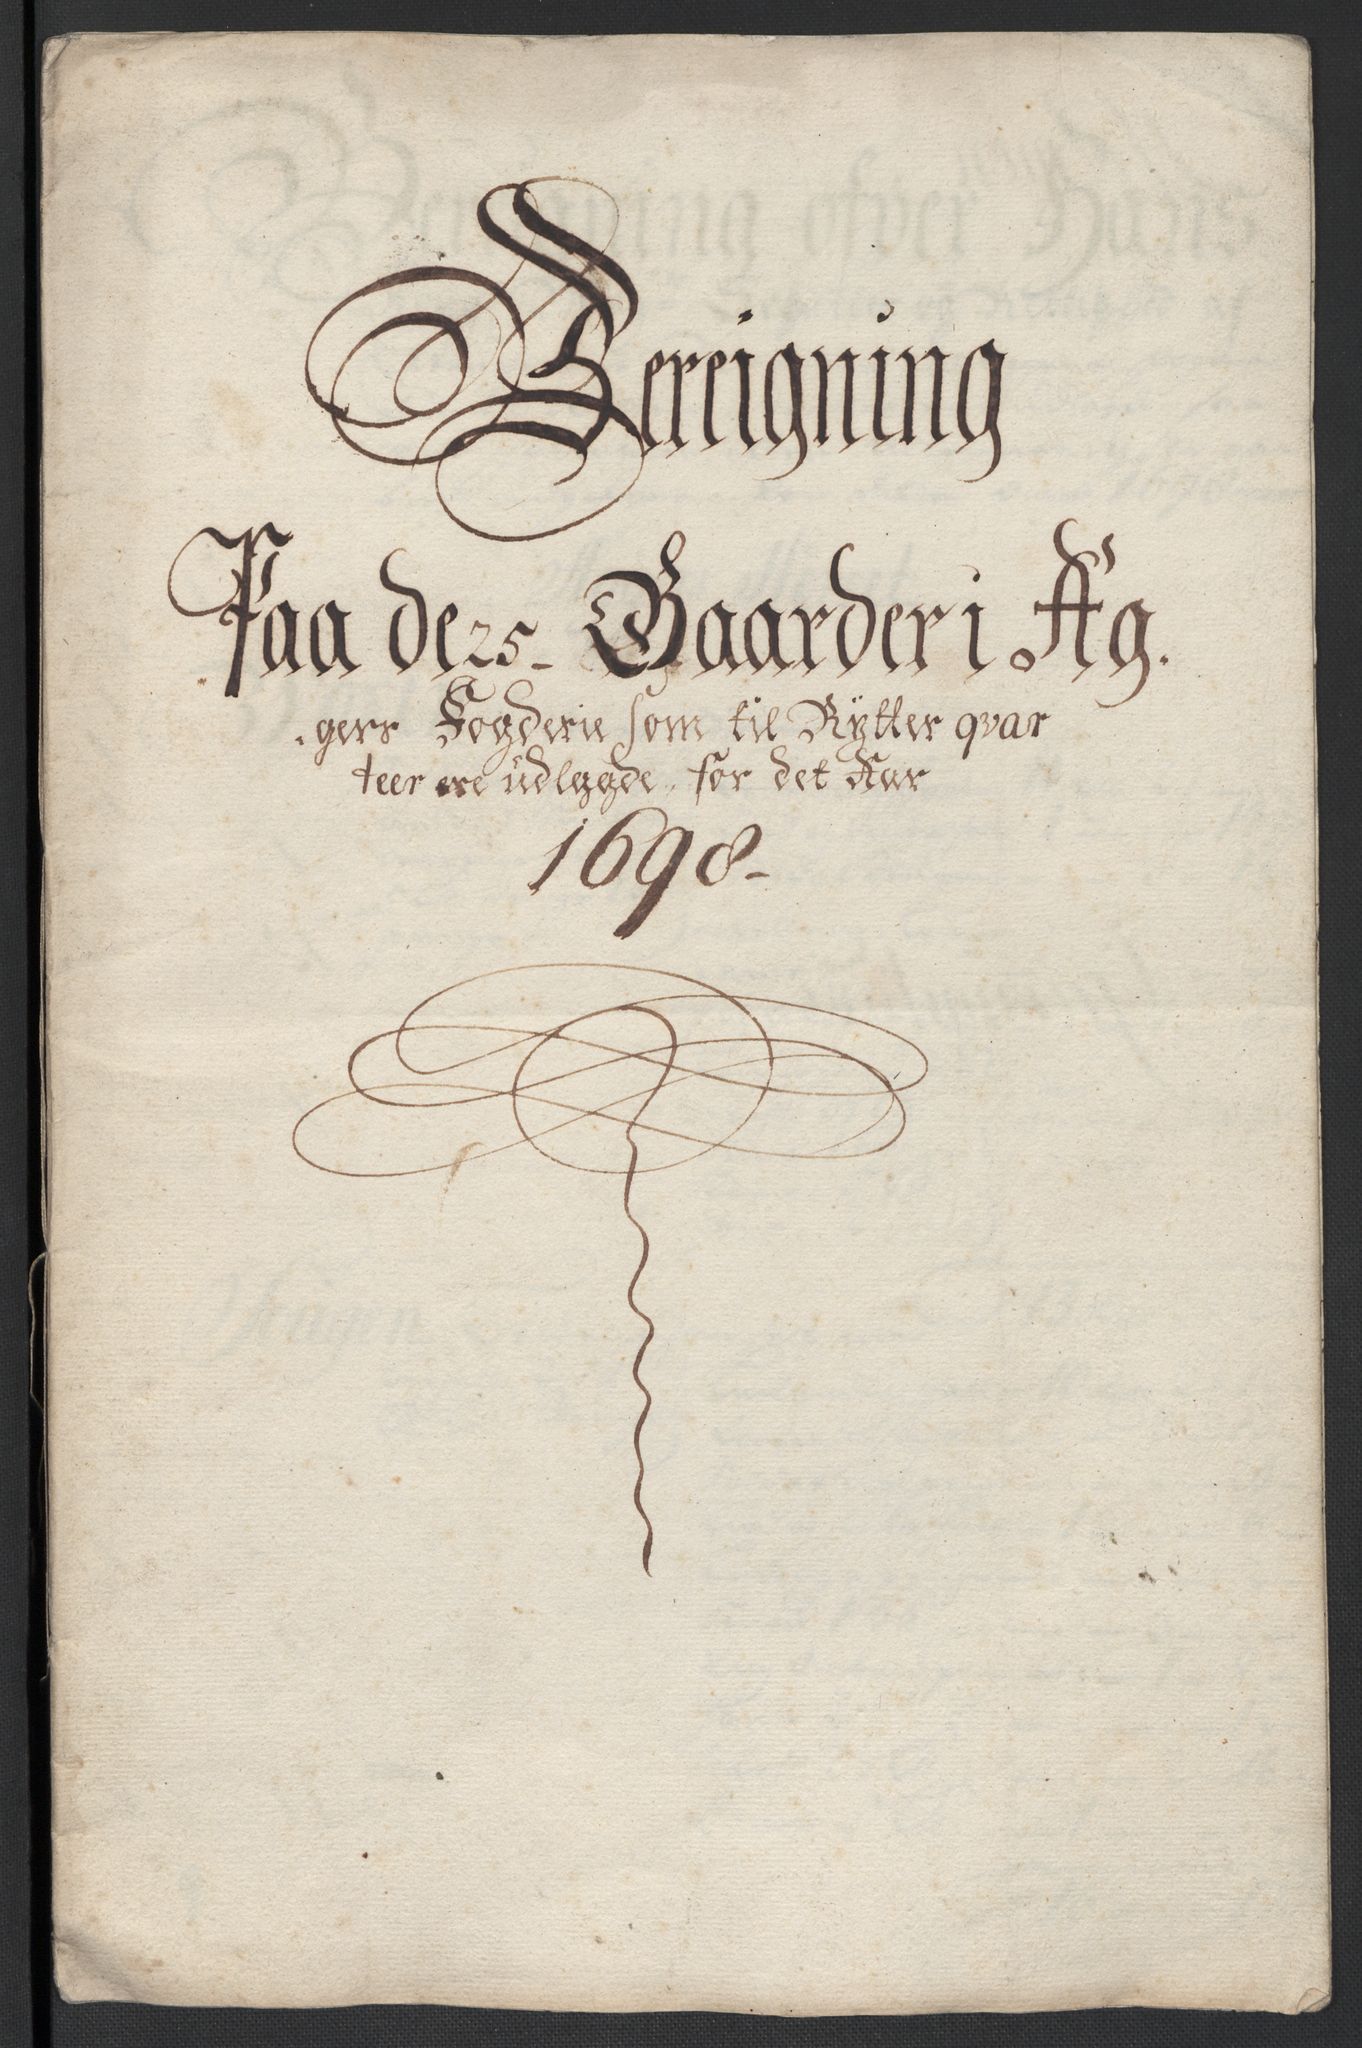 Bereigning
Paa de 25- Gaarder i Ag.
.gers Fogderie som til Rÿtter qvar
teer ere üdlagde, for det Aar
1698-